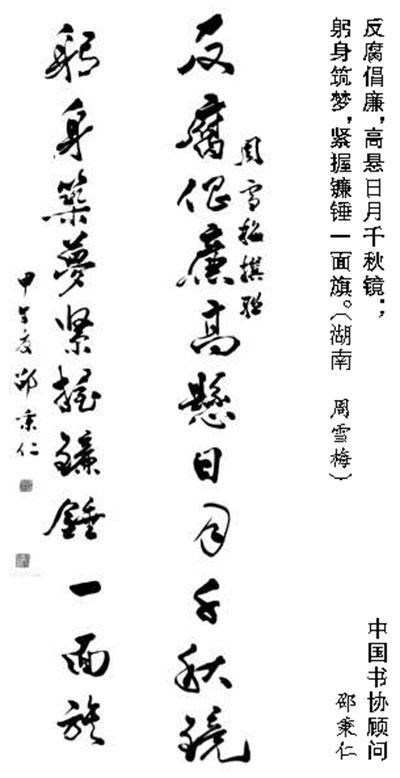 反腐倡廉，高悬日月千秋镜；
躬身筑梦，紧握镰锤一面旗。（湖南 周雪梅）
中国书协顾问
邵秉仁
周雪梅撰联
反腐倡廉高懸日月千秋鏡
躬身築夢緊握鐮錘一面旗
甲午夏 邵秉仁